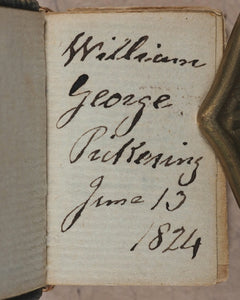 William
George
Pickering
June 13
1824